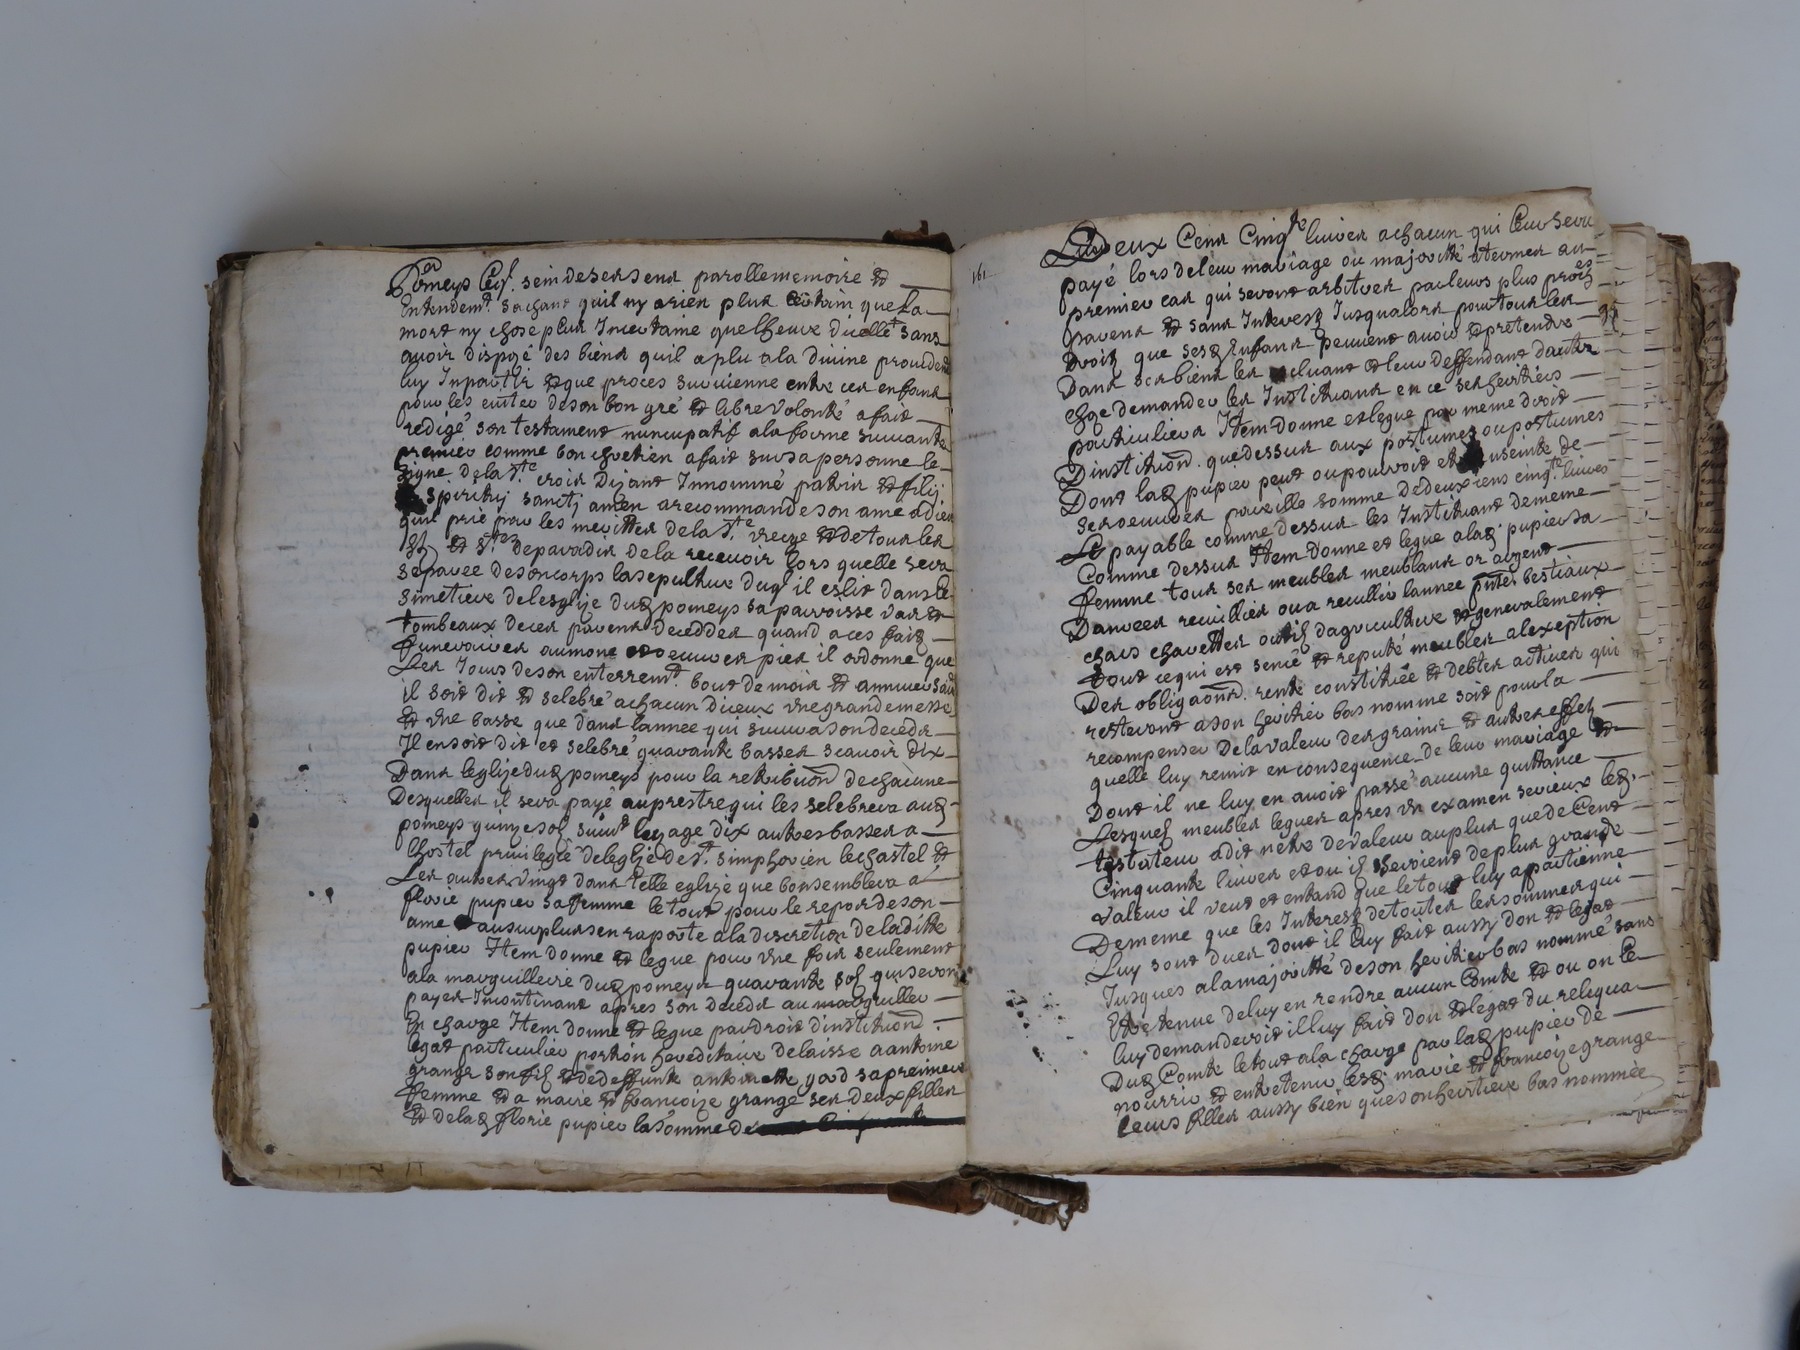 pomeys Lequel sein de ses sens parolle memoire et
Entendemt. sachant quil ny a rien plus certain que La
mort ny chose plus Incertaine que lheure dicelle et sans
avoir dispozé des biens quil a plu a la divine providence
luy Inpartir et que proces survienne entre ces enfans
pour les eviter de son bon gré et libre volonté a fait
redigé son testament nuncupatif a la forme suivante
premier comme bon chretien a fait sur sa personne le
signe de la Ste. croix Dizant Innominé patris et filij
spiritus sanctj amen a recommandé son ame a dieu
quil prie par les meritter de la Ste. vierge et de tous les
St et Stes de paradis de la recevoir lors quelle sera
separée de son corps la sepulture duql il eslit dans le
simetiere de leglize dud pomeys sa parroisse vas et
tombeaux de ces parens deceddes quand a ces frais
funeraires aumone et oeuvres pies il ordonne que
Les Jours de son enterremt. bout de mois et annuel soit
il soit dit et selebré a chacun diceux vne grande messe
et vne basse que dans lannee qui suivra son deceds
Il en soit dit et selebré quarante basses scavoir dix
Dans leglize dud pomeys pour la retribuon de chacune
Desquelles il sera payé au prestre qui les selebrera aud
pomeys quinze sols suivt lusage dix autres basses a
lhostel privilegié de leglize de St. simphorien le chastel et
Les autres vingt dans telle eglize que bon semblera a
florie pupier sa femme le tout pour le repos de son
ame au surplus sen raporte a la discretion de laditte
pupier Item donne et legue pour vne fois seulement
a la marguillerie dud pomeys quarante sols qui seront
payes Incontinant apres son deceds au marguillier
En charge Item donne et legue par droit dinstitution
legat particulier portion hereditaire delaisse a antoine
grange son fils et de deffunte antoinette gord sa premiere
femme et a marie et francoize grange ses deux filles
et de lad florie pupier la somme de
161
De deux Cens Cinqte livres a chacun qui leur sera
payé lors de leur mariage ou majorité et termes au
premier cas qui seront arbitrés par leurs plus proches
parens et sans Interest Jusqualors pour tous les
droits que sesd Enfans peuvent avoir et pretendre
Dans ses biens les excluant et leur deffendant dautre
choze demander les Instituant en ce ses heritiers
particuliers Item donne et legue par meme droit
Dinstitution que dessus aux postumes ou postumes
Dont lad pupier peut ou pouroit etre enseinte de
ses oeuvres pareille somme de deux cens cinqte. livres
payable comme dessus les Instituant de meme
Comme dessus Item donne et legue a lad pupier sa
femme tous ses meubles meublans or argent
Danrees recuillies ou a recullir lannee pnte. bestiaux
chars charettes outils dagriculture et generalement
tout ce qui est sencé et reputé meubles a lexeption
Des obligaons. rente constituée et debtes actives qui
resteront a son heritier bas nommé soit pour la
recompenser De la valeur des grains et autres effets
quelle luy remit en consequence De leur mariage et
Dont il ne luy en avoit passé aucune quittance
Lesquels meubles legués apres vn examen serieux led.
testateur a dit netre de valeur au plus que de Cent
Cinquante livres et ou ils seroient de plus grande
valeur il veut et entend que le tout luy apartienne
De meme que les Interest de toutes les sommes qui
Luy sont dues dont il luy fait aussy don et legat
Jusques a la majorité de son heritier bas nommé sans
Etre tenue de luy en rendre aucun Comte et ou on le
luy demanderoit il luy fait don et legat du reliqua
Dud Comte le tout a la charge par lad pupier de
nourrir et entretenir lesd marie et francoize grange
leurs filles aussy bien que son heritiere bas nommée